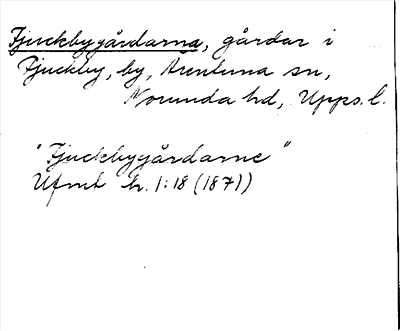 Fjuckbygårdarna, gårdar i
Fjuckby, by, Ärentuna sn,
Norunda hd, Upps. l.
"Fjuckbygårdarne"
Ufmt h. 1:18 (1871)